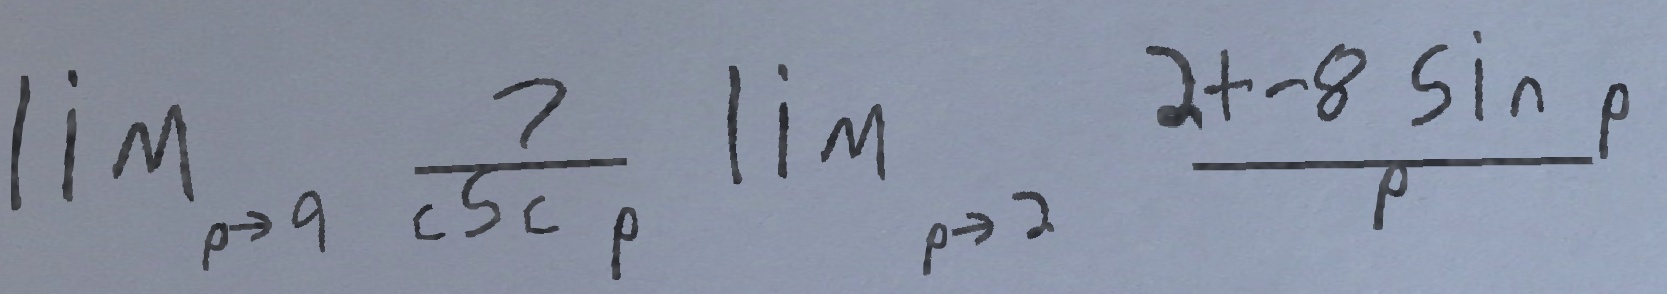 \lim_{p \to 9} \frac{7}{\csc p} \lim_{p \to 2} \frac{2+-8 \sin p}{p}